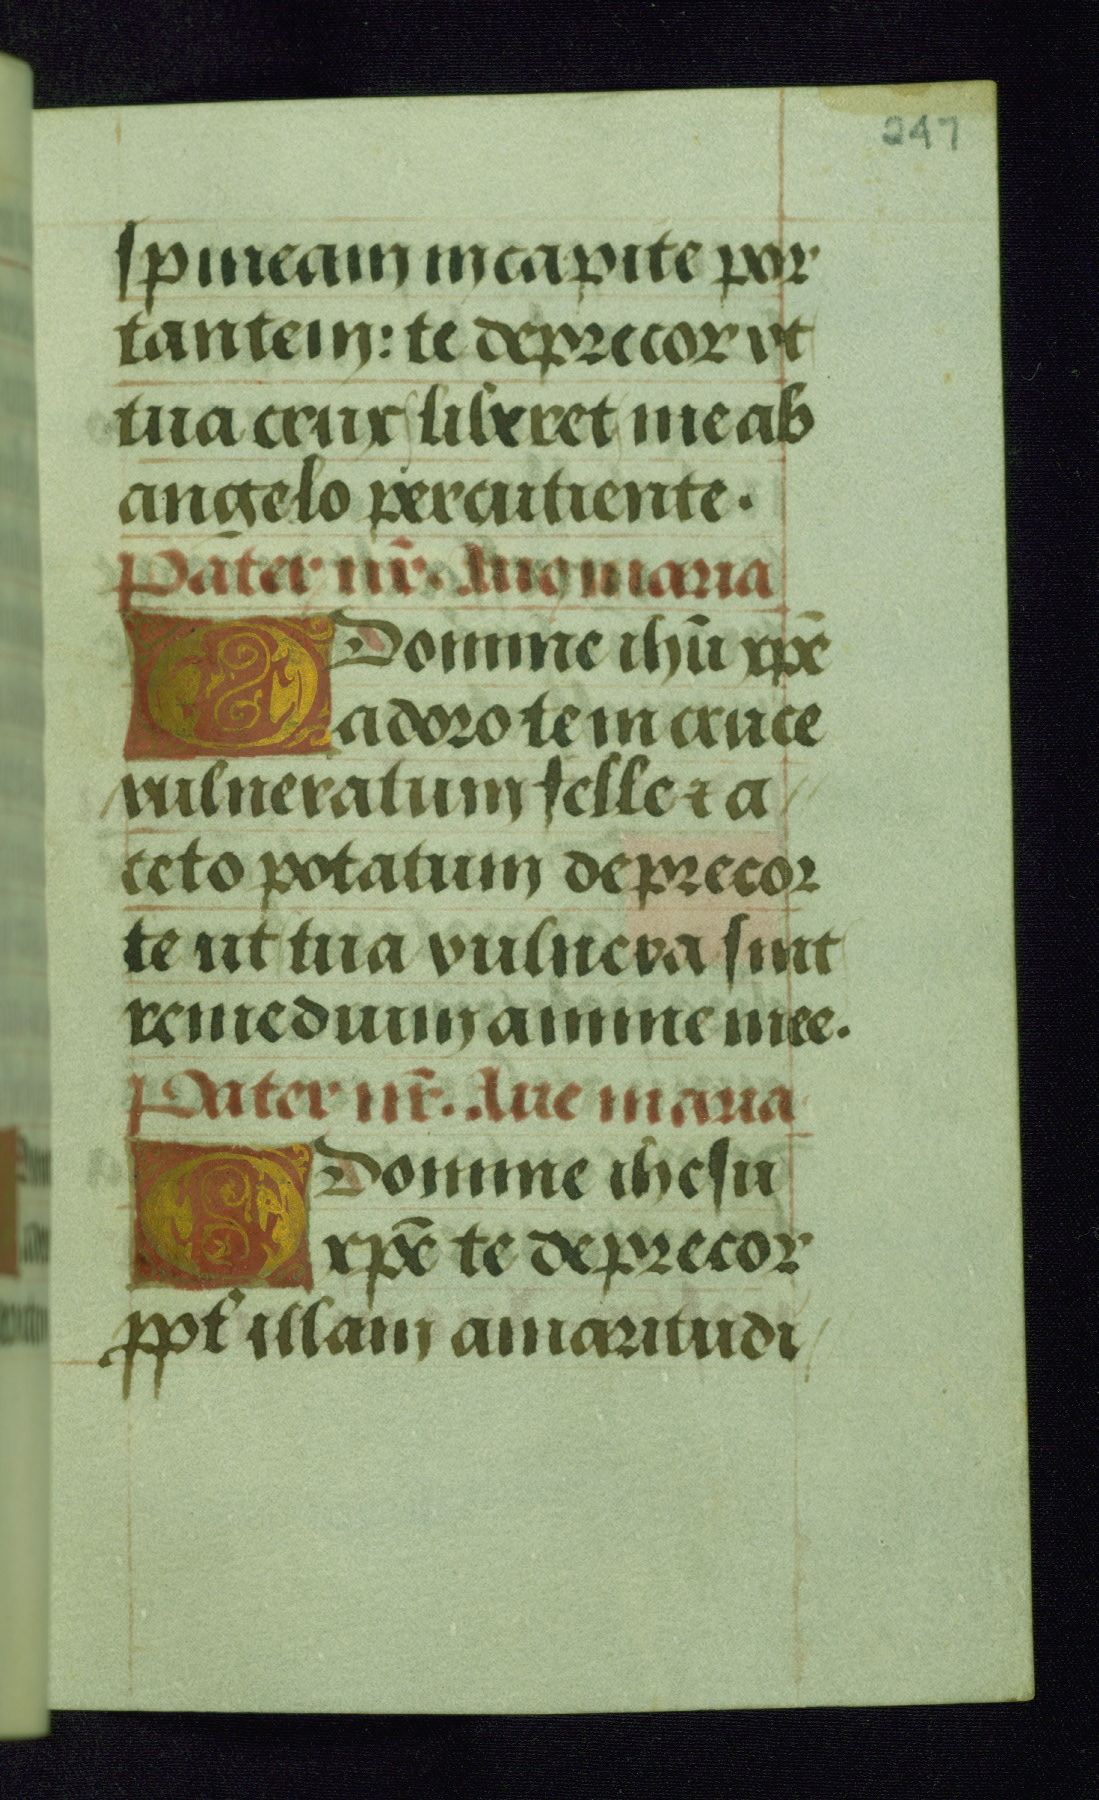 247
spineam in capite por
tantem: te deprecor vt
tua crux liberet me ab
angelo percutiente.
Pater nr̄. Aue maria
O Domine ihū xp̄e
adoro te in cruce
vulneratum felle ⁊ a
ceto potatum deprecor
te ut tua vulnera sint
remedium anime mee.
Pater nr̄. Aue maria
O Domine ihesu
xp̄e te deprecor
ppt᷑ illam amaritudi